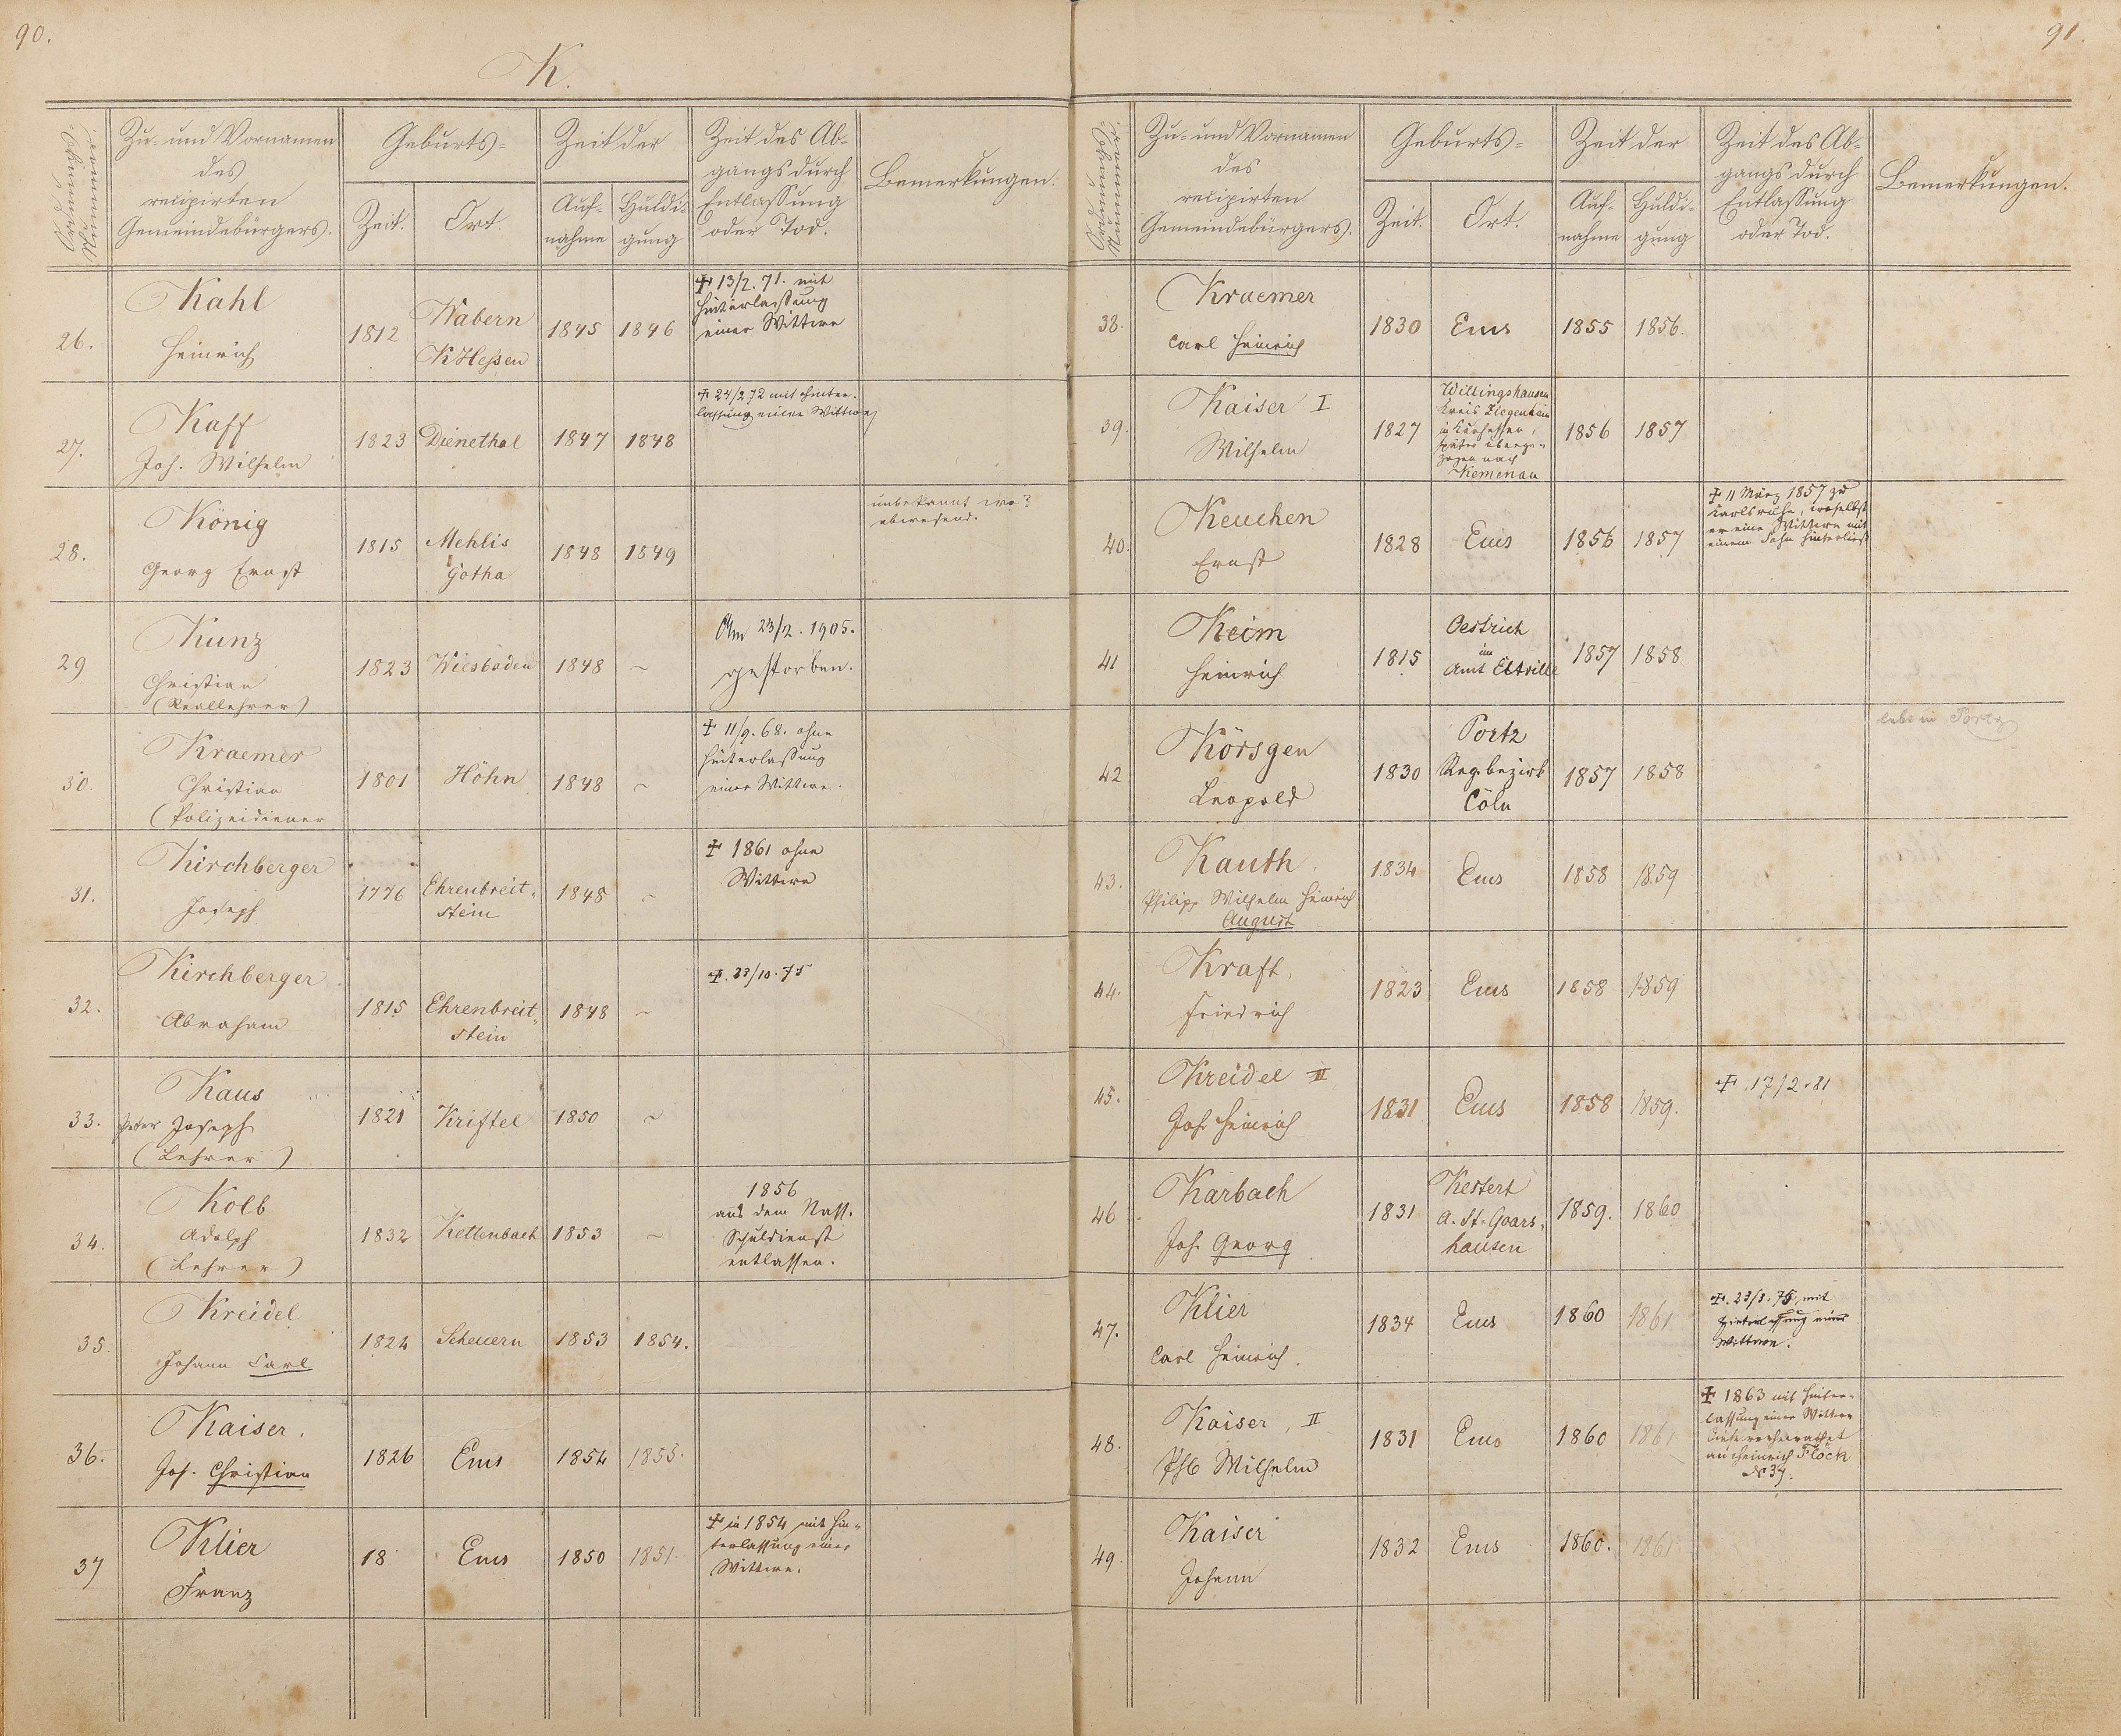 90.
K.
Ordnungs-
Nummer.
Zu- und Vornamen
des
recipirten
Gemeindebürgers.
Geburts-
Zeit.
Ort.
Zeit der
Auf-
nahme
Huldi-
gung
Zeit des Ab-
gangs durch
Entlassung
oder Tod.
Bemerkungen.
26.
Kahl
Heinrich
1812
Wabern
K Hessen
1845
1846
✝ 13/2. 71. mit
Hinterlassung
einer Wittwe
27.
Kaff
Joh. Wilhelm
1823
Dienethal
1847
1848
✝ 24/2 72 mit Hinter-
lassung einer Wittwe
28.
König
Georg Ernst
1815
Mehlis
Gotha
1848
1849
unbekannt wo?
abwesend.
29
Kunz
Christian
(Reallehrer)
1823
Wiesbaden
1848
~
Am 23/2. 1905.
gestorben.
30.
Kraemer
Christian
(Polizeidiener
1801
Höhn
1848
~
✝ 11/9. 68. ohne
Hinterlassung
einer Wittwe.
31.
Kirchberger
Joseph
1776
Ehrenbreit-
stein
1848
~
✝ 1861 ohne
Wittwe
32.
Kirchberger
Abraham
1815
Ehrenbreit-
stein
1848
~
✝. 23/10. 75
33.
Kaus
Peter Joseph
(Lehrer)
1821
Kriftel
1850
~
34.
Kolb
Adolph
(Lehrer)
1832
Kettenbach
1853
~
1856
aus dem Nass.
Schuldienst
entlassen.
35.
Kreidel
Johann Carl
1824
Scheuern
1853
1854.
36.
Kaiser.
Joh. Christian
1826
Ems
1854
1855.
37
Klier
Franz
18
Ems
1850
1851.
✝ in 1854 mit Hin-
terlassung einer
Wittwe.
91.
Ordnungs-
Nummer.
Zu- und Vornamen
des
recipirten
Gemeindebürgers.
Geburts-
Zeit.
Ort.
Zeit der
Auf-
nahme
Huldi-
gung
Zeit des Ab-
gangs durch
Entlassung
oder Tod.
Bemerkungen.
38.
Kraemer
Carl Heinrich
1830
Ems
1855
1856.
39.
Kaiser I
Wilhelm
1827
Willingshausen
Kreis Ziegenhain
in Kurhessen,
später überge-
zogen nach
Kemenau
1856
1857
40.
Keuchen
Ernst
1828
Ems
1856
1857
✝ 11 März 1857 zu
Karlsruhe, woselbst
er eine Wittwe mit
einem Sohn hinterliess
41
Keim
Heinrich
1815
Oestrich
im
Amt Eltville
1857
1858
42
Körsgen
Leopold
1830
Portz
Reg.bezirk
Cöln
1857
1858
lebt in Portz
43.
Kauth.
Philipp Wilhelm Heinrich
August
1834
Ems
1858
1859
44.
Kraft,
Friedrich
1823
Ems
1858
1859
45.
Kreidel II
Joh Heinrich
1831
Ems
1858
1859.
✝. 17/2. 81
46
Karbach
Joh. Georg
1831
Kestert
A. St. Goars-
hausen
1859.
1860
47.
Klier
Carl Heinrich.
1834
Ems
1860
1861
✝. 23/3. 75, mit
Hinterlassung einer
Wittwe.
48.
Kaiser, II
Phl Wilhelm
1831
Ems
1860
1861
✝ 1863 mit Hinter-
lassung einer Wittwe
diese verheirathet
an Heinrich Flöck
No 34.
49.
Kaiser
Johann
1832
Ems
1860.
1861